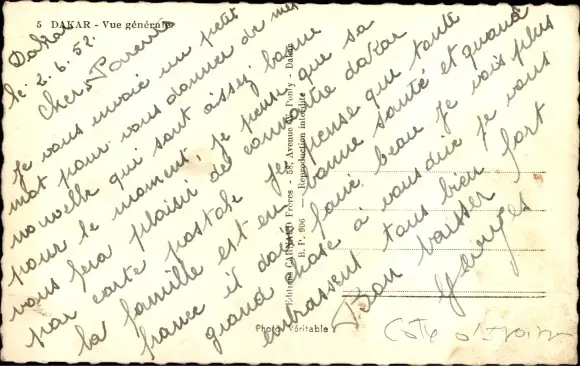 5 DAKAR - Vue générale
Dakar
le 2.6.52.
Chers Parents
Je vous envoie un petit
mot pour vous donner de mes
nouvelle qui sont assez bonne
pour le moment, je pense que sa
vous fera plaisir de connaitre dakar
par carte postale je pense que tante
la famille est en bonne santé et quand
france il doit faire beau je vois plus
grand chose a vous dire je vous
embrassent tous bien fort
Bon baisser
Georges
Editions Frères - 58, Avenue W. Ponty - Dakar
B. P. 906 — Reproduction interdite
Photo Véritable
Cote d'Ivoire